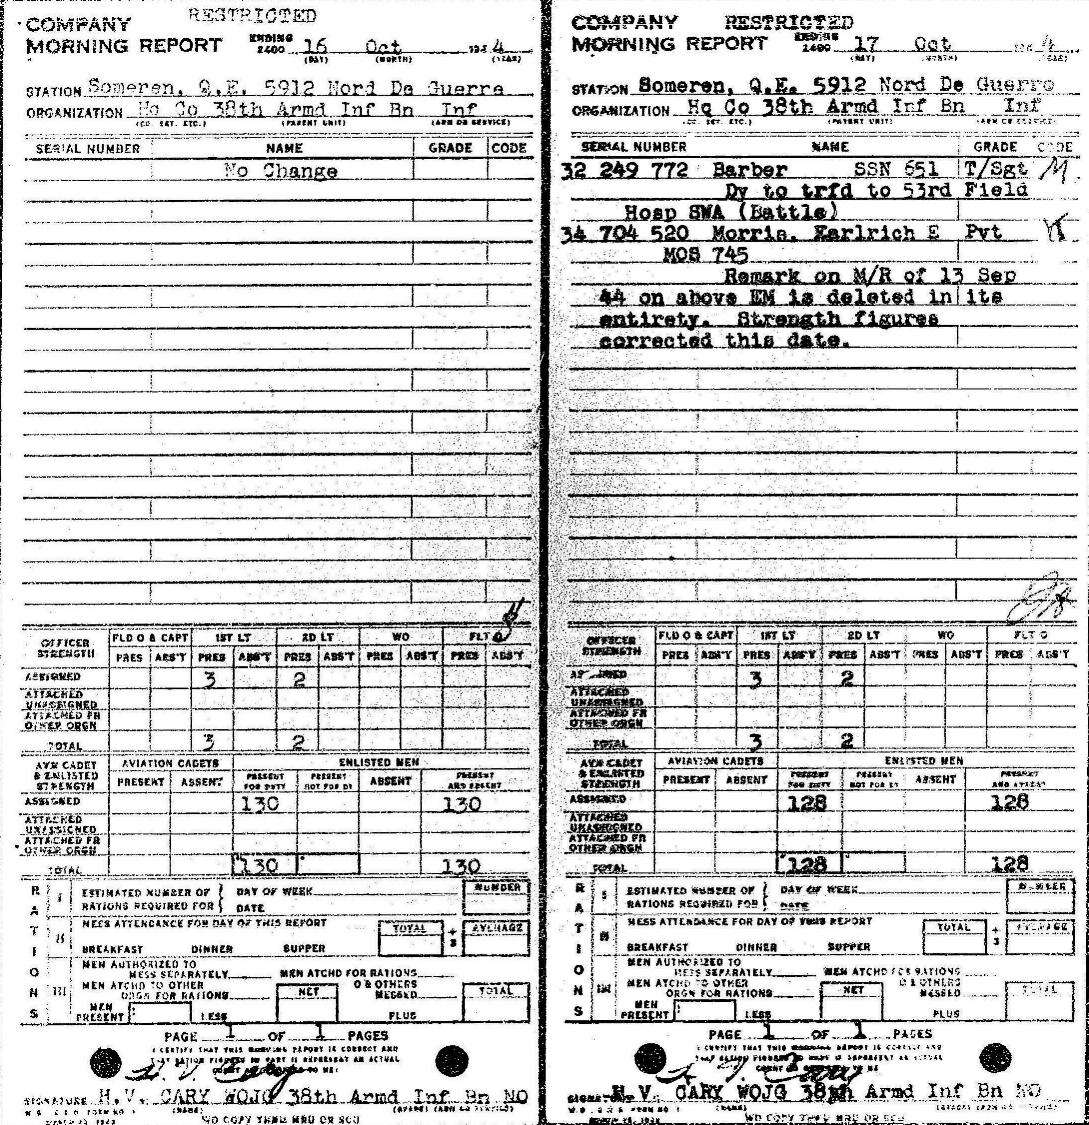 COMPANY RESTRICTED
MORNING REPORT ENDING 2400 16 Oct 194 4
(DAY) (MONTH) (YEAR)
STATION Someren, Q.E. 5912 Nord De Guerre
ORGANIZATION Hq Co 38th Armd Inf Bn Inf
(CO. DET. ETC.) (PARENT UNIT) (ARM OR SERVICE)
SERIAL NUMBER NAME GRADE CODE
No Change
OFFICER STRENGTH FLD O & CAPT 1ST LT 2D LT WO FLT O
PRES ABS'T PRES ABS'T PRES ABS'T PRES ABS'T PRES ABS'T
ASSIGNED 3 2
ATTACHED UNASSIGNED
ATTACHED FR OTHER ORGN
TOTAL 3 2
AVN CADET & ENLISTED STRENGTH AVIATION CADETS ENLISTED MEN
PRESENT ABSENT PRESENT FOR DUTY PRESENT NOT FOR DY ABSENT PRESENT AND ABSENT
ASSIGNED 130 130
ATTACHED UNASSIGNED
ATTACHED FR OTHER ORGN
TOTAL 130 130
RATIONS
I ESTIMATED NUMBER OF RATIONS REQUIRED FOR DAY OF WEEK DATE NUMBER
II MESS ATTENDANCE FOR DAY OF THIS REPORT TOTAL ÷ 3 AVERAGE
BREAKFAST DINNER SUPPER
III MEN AUTHORIZED TO MESS SEPARATELY MEN ATCHD FOR RATIONS
MEN ATCHD TO OTHER ORGN FOR RATIONS NET O & OTHERS MESSED TOTAL
MEN PRESENT LESS PLUS
PAGE 1 OF 1 PAGES
I CERTIFY THAT THIS MORNING REPORT IS CORRECT AND
SIGNATURE H.V. CARY WOJG 38th Armd Inf Bn NO
(NAME)
WD COPY THRU MRU OR SCU
COMPANY RESTRICTED
MORNING REPORT ENDING 2400 17 Oct 194 4
(DAY) (MONTH) (YEAR)
STATION Someren, Q.E. 5912 Nord De Guerre
ORGANIZATION Hq Co 38th Armd Inf Bn Inf
(CO. DET. ETC.) (PARENT UNIT) (ARM OR SERVICE)
SERIAL NUMBER NAME GRADE CODE
32 249 772 Barber SSN 651 T/Sgt M
Dy to trfd to 53rd Field
Hosp SWA (Battle)
34 704 520 Morris, Karlrich E Pvt
MOS 745
Remark on M/R of 13 Sep
44 on above EM is deleted in its
entirety. Strength figures
corrected this date.
OFFICER STRENGTH FLD O & CAPT 1ST LT 2D LT WO FLT O
PRES ABS'T PRES ABS'T PRES ABS'T PRES ABS'T PRES ABS'T
ASSIGNED 3 2
ATTACHED UNASSIGNED
ATTACHED FR OTHER ORGN
TOTAL 3 2
AVN CADET & ENLISTED STRENGTH AVIATION CADETS ENLISTED MEN
PRESENT ABSENT PRESENT FOR DUTY PRESENT NOT FOR DY ABSENT PRESENT AND ABSENT
ASSIGNED 128 128
ATTACHED UNASSIGNED
ATTACHED FR OTHER ORGN
TOTAL 128 128
RATIONS
I ESTIMATED NUMBER OF RATIONS REQUIRED FOR DAY OF WEEK DATE NUMBER
II MESS ATTENDANCE FOR DAY OF THIS REPORT TOTAL ÷ 3 AVERAGE
BREAKFAST DINNER SUPPER
III MEN AUTHORIZED TO MESS SEPARATELY MEN ATCHD FOR RATIONS
MEN ATCHD TO OTHER ORGN FOR RATIONS NET O & OTHERS MESSED TOTAL
MEN PRESENT LESS PLUS
PAGE 1 OF 1 PAGES
I CERTIFY THAT THIS MORNING REPORT IS CORRECT AND
SIGNATURE H.V. CARY WOJG 38th Armd Inf Bn NO
(NAME)
WD COPY THRU MRU OR SCU